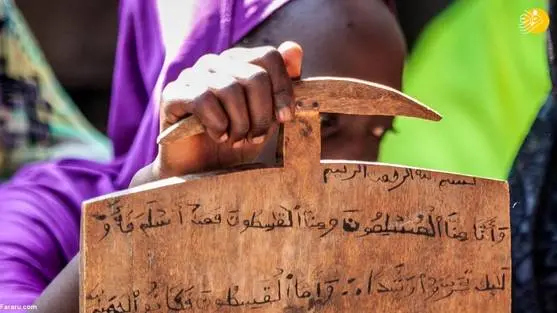 بسم الله الرحمن الرحيم
وأنا منا ٱلمسلمون ومنا ٱلقسطون فمن أسلم فأو
لئك تحروا رشدا وأما ٱلقسطون فكانوا
Fararu.com